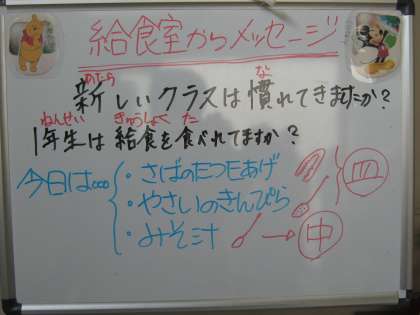 給食室からメッセージ
あたら な
新しいクラスは慣れてきましたか?
ねんせい きゅうしょく た
1年生は給食を食べれてますか?
今日は…
・さばのたつたあげ
・やさいのきんぴら
皿
・みそ汁
→中